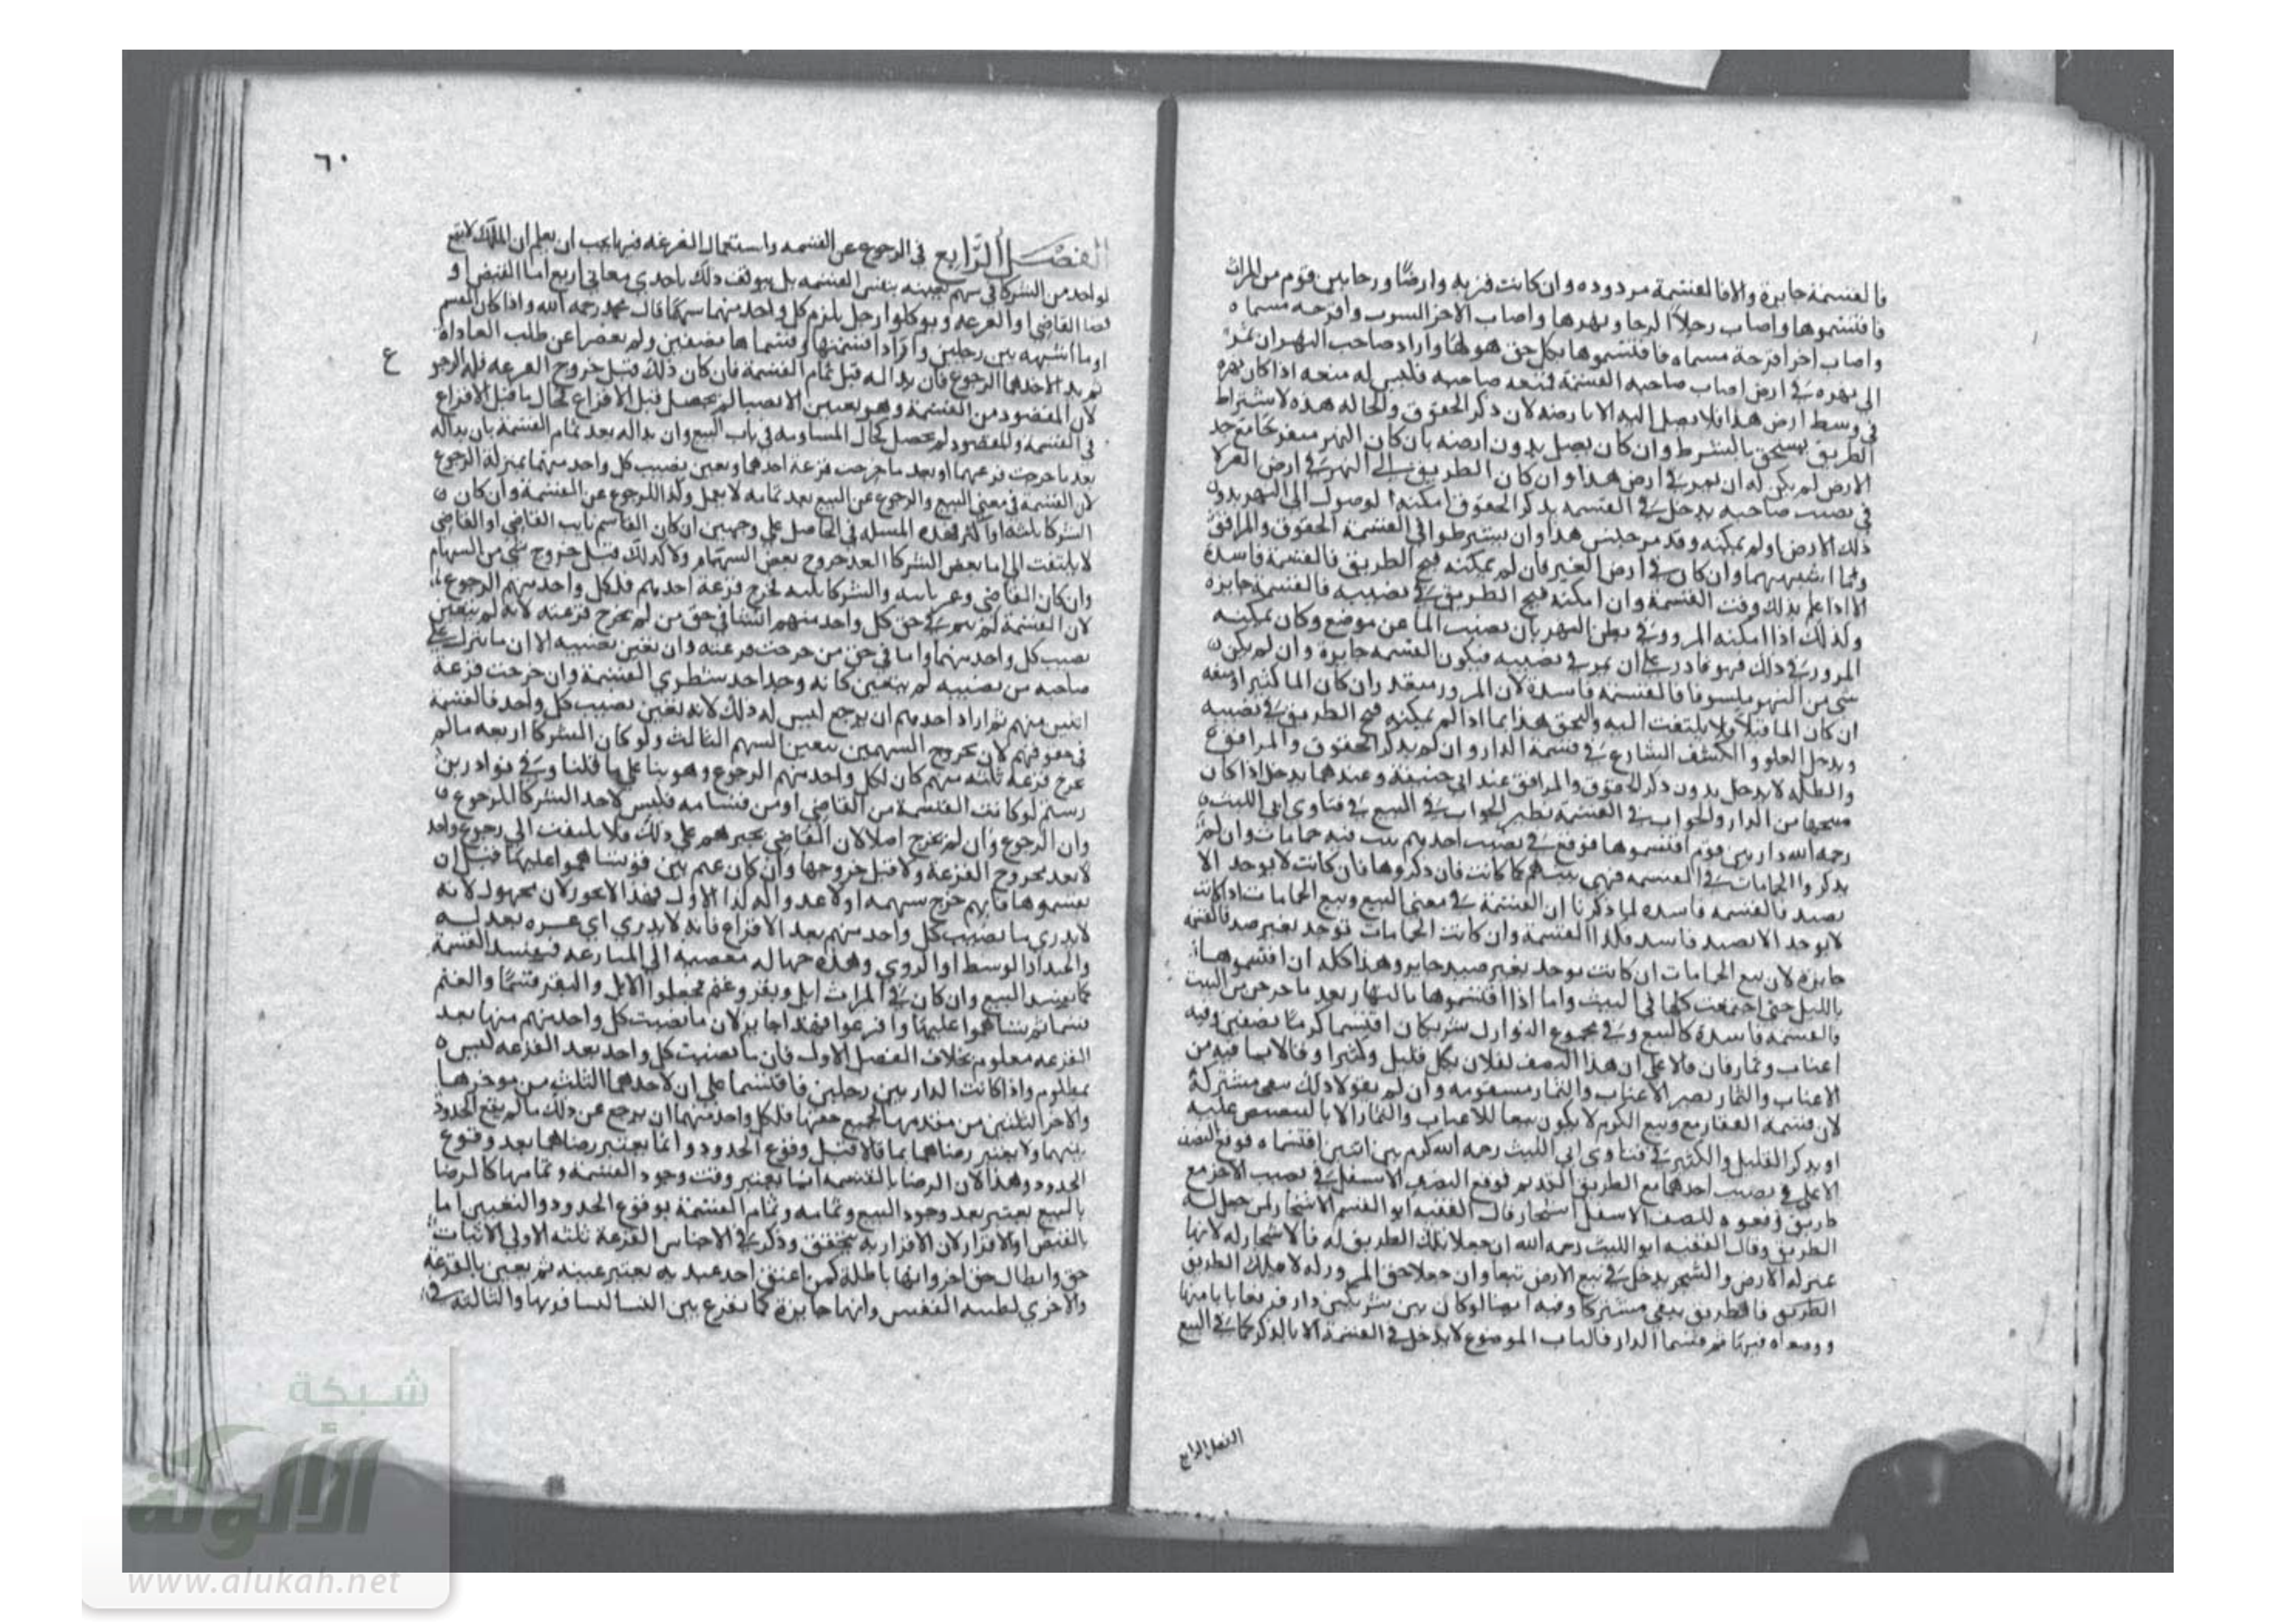 فالقسمة جايزة والا فالقسمة مردوده وان كانت قريه وارضًا ورحا بين قوم من المراث
فاقتسموها واصاب رجلاً الرحا ونهرها واصاب الاخر البيوت واقرحه مسماه
واصاب اخر اقرحة مسماه فاقتسموها بكل حق هو لها واراد صاحب النهر ان يمر
الى نهره في ارض اصاب صاحبه القسمة فمنعه صاحبه فليس له منعه اذا كان نهره
في وسط ارض هذا فلا يصل اليه الا بارضه لان ذكر الحقوق والحاله هذه لاشتراط
الطريق يستحق بالشرط وان كان يصل بدون ارضه بان كان النهر منفرجًا مع حد
الارض لم يكن له ان يمر في ارض هذا وان كان الطريق الى النهر في ارض الغير لا
في نصيب صاحبه يدخل في القسمه بذكر الحقوق امكنه الوصول الى النهر بدون
ذلك الارض او لم يمكنه وقد مر جنس هذا وان يشترطوا في القسمة الحقوق والمرافق
وما اشبههما وان كان في ارض الغير فان لم يمكنه فتح الطريق فالقسمة فاسدة
الا اذا علم بذلك وقت القسمة وان امكنه فتح الطريق في نصيبه فالقسمة جايزه
ولذلك اذا امكنه المرور في بطن النهر بان نضب الما عن موضع وكان يمكنه
المرور في ذلك فهو قادر على ان يمر في نصيبه فيكون القسمه جايزة وان لم يكن
شي من النهر مكشوفا فالقسمه فاسدة لان المرور متعذر وان كان الما كثيرا
ان كان الما قليلا ولا يلتفت اليه والتحق هذا بما اذا لم يمكنه فتح الطريق في نصيبه
ويدخل العلو والكنيف الشارع في قسمة الدار وان لم يذكر الحقوق والمرافق
والظله لا يدخل بدون ذكر الحقوق والمرافق عند ابي حنيفة وعندهما يدخل اذا كان
مفتحها من الدار والجواب في القسمة نظير الجواب في البيع في فتاوى ابي الليث
رحمه الله دار بين قوم اقتسموها فوقع في نصيب احدهم بيت فيه حمامات وان لم
يذكروا الحمامات في القسمه فهي بينهم كما كانت فان ذكروها فان كانت لا يوخد الا
بصيد فالقسمه فاسده لما ذكرنا ان القسمة في معنى البيع وبيع الحمامات اذا كانت
لا يوخد الا بصيد فاسد فكذا القسمة وان كانت الحمامات توخد بغير صيد فالقسمة
جايزه لان بيع الحمامات ان كانت يوخد بغير صيد جايز وهذا كله ان اقتسموها
بالليل حتى اجتمعت كلها في البيت واما اذا اقتسموها بالنهار بعد ما خرجن من البيت
فالقسمه فاسدة كالبيع وفي مجموع النوازل شريكان اقتسما كرمًا نصفين وفيه
اعناب وثمار فان قالا على ان هذا النصف لفلان بكل قليل وكثير او قالا بما فيه من
الاعناب والثمار تصير الاعناب والثمار مقسومه وان لم يقولا ذلك يبقى مشتركة
لان قسمة العقار بيع وبيع الكرم لا يكون بيعا للاعناب والثمار الا بالتنصيص عليه
او بذكر القليل والكثير في فتاوى ابي الليث رحمه الله كرم بين اثنين اقتسماه فوقع النصف
الاعلى في نصيب احدهما مع الطريق القديم فوقع النصف الاسفل في نصيب الاخر مع
طريق وقعوه للنصف الاسفل اشجار قال الفقيه ابو القسم الاشجار لمن جعل له
الطريق وقال الفقيه ابو الليث رحمه الله ان جعلا تلك الطريق له فالاشجار له لانها
بمنزله الارض والشجر يدخل في بيع الارض تبعا وان جعلا حق المرور له لا ملك الطريق
الطريق فالطريق يبقى مشتركا وفيه ايضا لو كان بين شريكين دار فرفعا بابا منها
ووضعاه فيها ثم قسما الدار فالباب الموضوع لا يدخل في القسمة الا بالذكر كما في البيع
الفصل الرابع
٦٠
الفصل الرابع في الرجوع عن القسمه واستعمال القرعه فيها يجب ان يعلم ان الملك لا يقع
لواحد من الشركا في سهم بعينه بنفس القسمه بل يتوقف ذلك باحدى معاني اربع اما القبض او
قضا القاضي او القرعه ويوكلوا رجل يلزم كل واحد منهما سهمًا قال محمد رحمه الله واذا كان الغنم
او ما اشبهه بين رجلين وارادا قسمتها وقسماها نصفين
ثم بدا لاحدهما الرجوع فان بدا له قبل تمام القسمة فان كان ذلك قبل خروج القرعه فله الرجو
ع
لان المقصود من القسمة وهو تعيين الانصبا لم يحصل قبل الاقراع كحال ما قبل الاقراع
في القسمة والمقصود لم يحصل كحال المساومه في باب البيع وان بدا له بعد تمام القسمة بان بدا له
بعد ما خرجت قرعتهما او بعد ما خرجت قرعة احدهما وتعين نصيب كل واحد منهما بمنزلة الرجوع
لان القسمة في معنى البيع والرجوع عن البيع بعد تمامه لا يعمل وكذا الرجوع عن القسمة وان كان
الشركا ثلثه او اكثر فهذه المسله في الحاصل على وجهين ان كان القاسم نايب القاضي او القاضي
لا يلتفت الى ابا بعض الشركا بعد خروج بعض السهام ولا كذلك قبل خروج شي من السهام
وان كان القاضي وغير نايبه والشركا ثلثه لخرج قرعة احدهم فلكل واحد منهم الرجوع
لان القسمة لم يتم في حق كل واحد منهم اثنتنا في حق من لم يخرج قرعته لانه لم يتعين
نصيب كل واحد منهما واما في حق من خرجت قرعته وان تعين نصيبه الا ان ما ينزل على
صاحبه من نصيبه لم يتعين كانه وجد احد شطري القسمة وان خرجت قرعة
اثنين منهم ثم اراد احدهم ان يرجع ليس له ذلك لانه تعين نصيب كل واحد فالقسمة
في حقوقهم لان بخروج السهمين يتعين السهم الثالث ولو كان الشركا اربعه ما لم
يخرج قرعه ثلثه منهم كان لكل واحد منهم الرجوع وهو بنا على ما قلنا وفي نوادر بن
رستم لو كانت القسمة من القاضي او من قسامه فليس لاحد الشركا الرجوع
وان الرجوع وان لم تخرج اصلا لان القاضي يجبرهم على ذلك فلا يلتفت الى رجوع واحد
لا بعد خروج القرعة ولا قبل خروجها وان كان غنم بين قوم تساهموا عليها قبل ان
يقتسموها فايهم خرج سهمه اولا عدوا له كذا الاول فهذا لا يجوز لان مجهول لانه
لا يدري ما نصيب كل واحد منهم بعد الاقراع فانه لا يدري اي عشره يعد له
والجيد او الوسط او الردي وهذه جهاله مفضيه الى المنازعه فيفسد القسمة
كما يفسد البيع وان كان في المراث ابل وبقر وغنم فجعلوا الابل والبقر قسمًا والغنم
قسما ثم تساهموا عليها واقرعوا فهذا جايز لان ما نصيب كل واحد منهم منها بعد
القرعه معلوم بخلاف الفصل الاول فان ما نصيب كل واحد بعد القرعه ليس
بمعلوم واذا كانت الدار بين رجلين فاقتسما على ان لاحدهما الثلث من موخرها
والاخر الثلثين من مقدمها بجميع حقها فلكل واحد منهما ان يرجع عن ذلك ما لم يقع الحدود
بينهما ولا يعتبر رضاهما بما قالا قبل وقوع الحدود وانما يعتبر رضاهما بعد وقوع
الحدود وهذا لان الرضا بالقسمه انما يعتبر وقت وجود القسمة وتمامها كالرضا
بالبيع يعتبر بعد وجود البيع وتمامه وتمام القسمة بوقوع الحدود والتعيين اما
بالقبض او الاقرار لان الاقرار به يتحقق وذكر في الاجناس القرعة ثلثه الاولى لاثبات
حق وابطال حق اخر وانها باطلة كمن اعتق احد عبيده بغير عينه ثم يعين بالقرعة
والاخرى لطيبه النفس وانها جايزة كما يقرع بين النسا ليسافر بها والثالثة في
شبكة
الألوكة
www.alukah.net